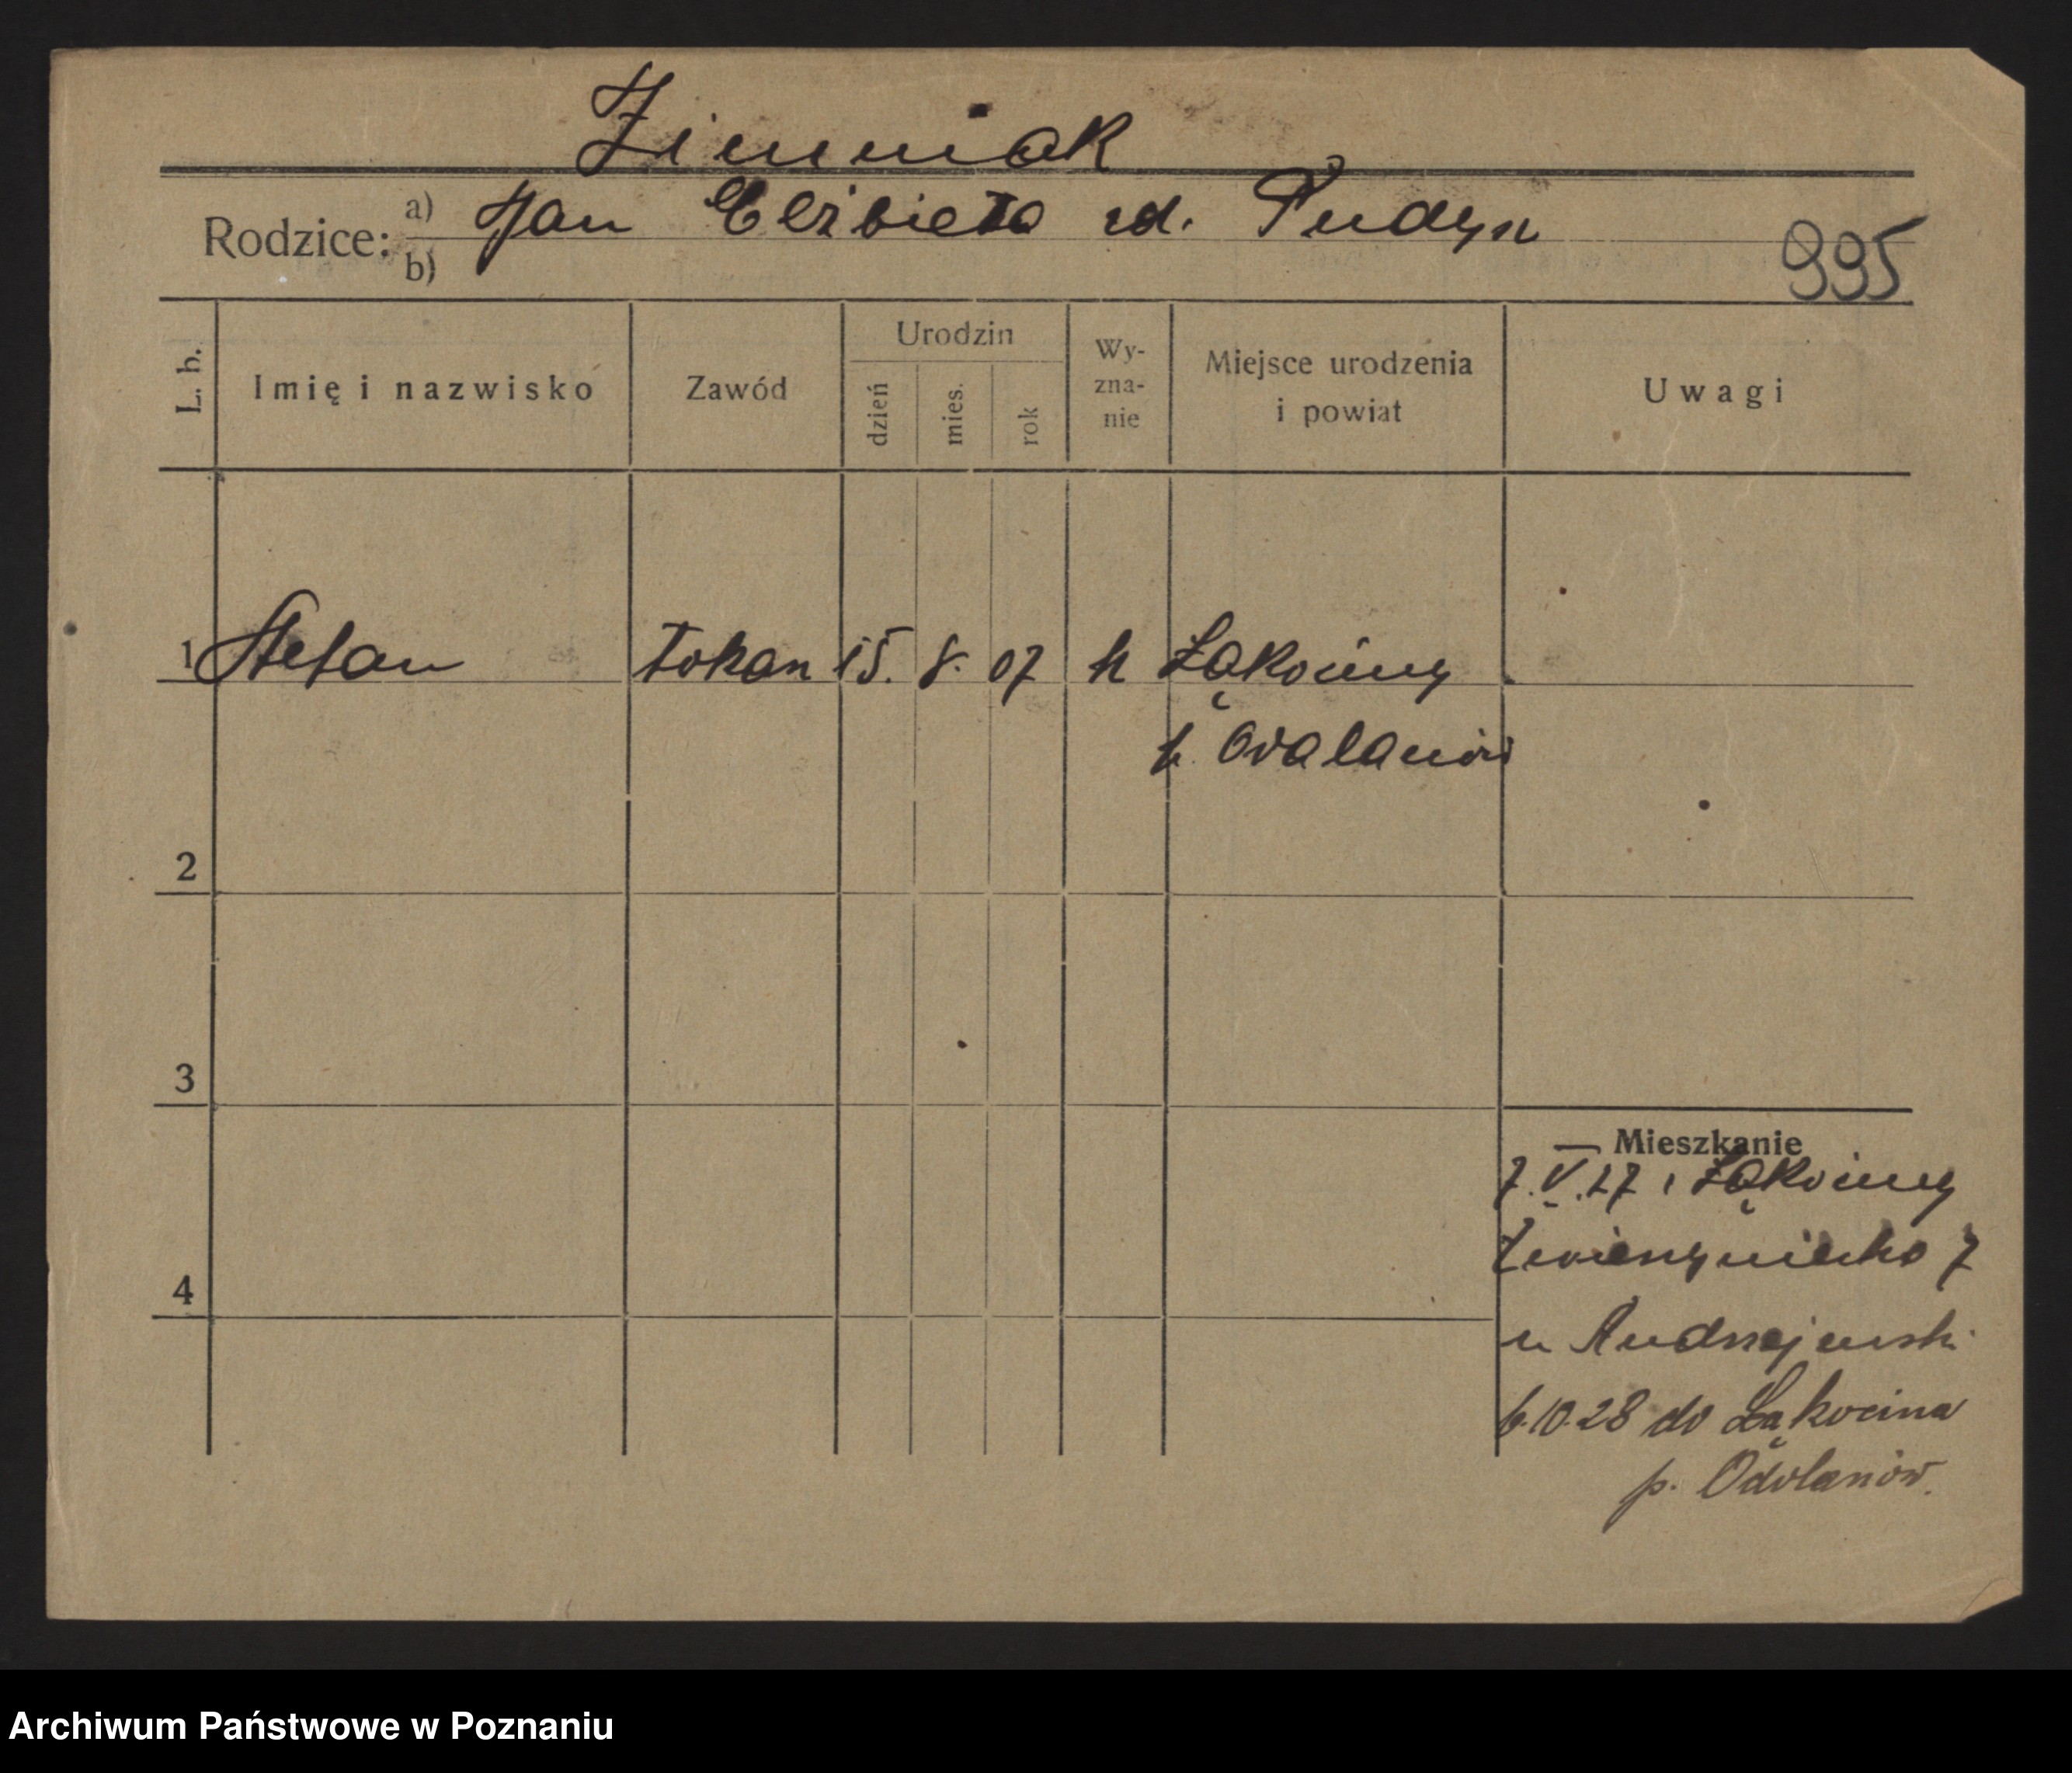 Zimniak
Rodzice: a) Jan Elżbieta rd. Pudyn
b)
995
L. b. Imię i nazwisko Zawód Urodzin dzień mies. rok Wy-zna-nie Miejsce urodzenia i powiat Uwagi
1 Stefan Tokarz 15. 8. 07 k Łąkociny
p. Odolanów
2
3
Mieszkanie
7.V.27 z Łąkociny
Zwierzyniecka 7
4
u Andrzejewski
6.10.28 do Łąkocina
p. Odolanów.
Archiwum Państwowe w Poznaniu